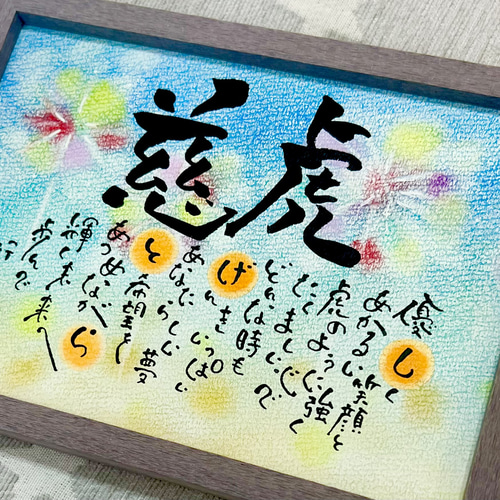 慈虎
優しく
あかるい笑顔と
虎のように強く
たくましく
どんな時も
げんきいっぱい
あなたらしい
夢と希望を
あつめながら
輝く未来へ
歩んで
行